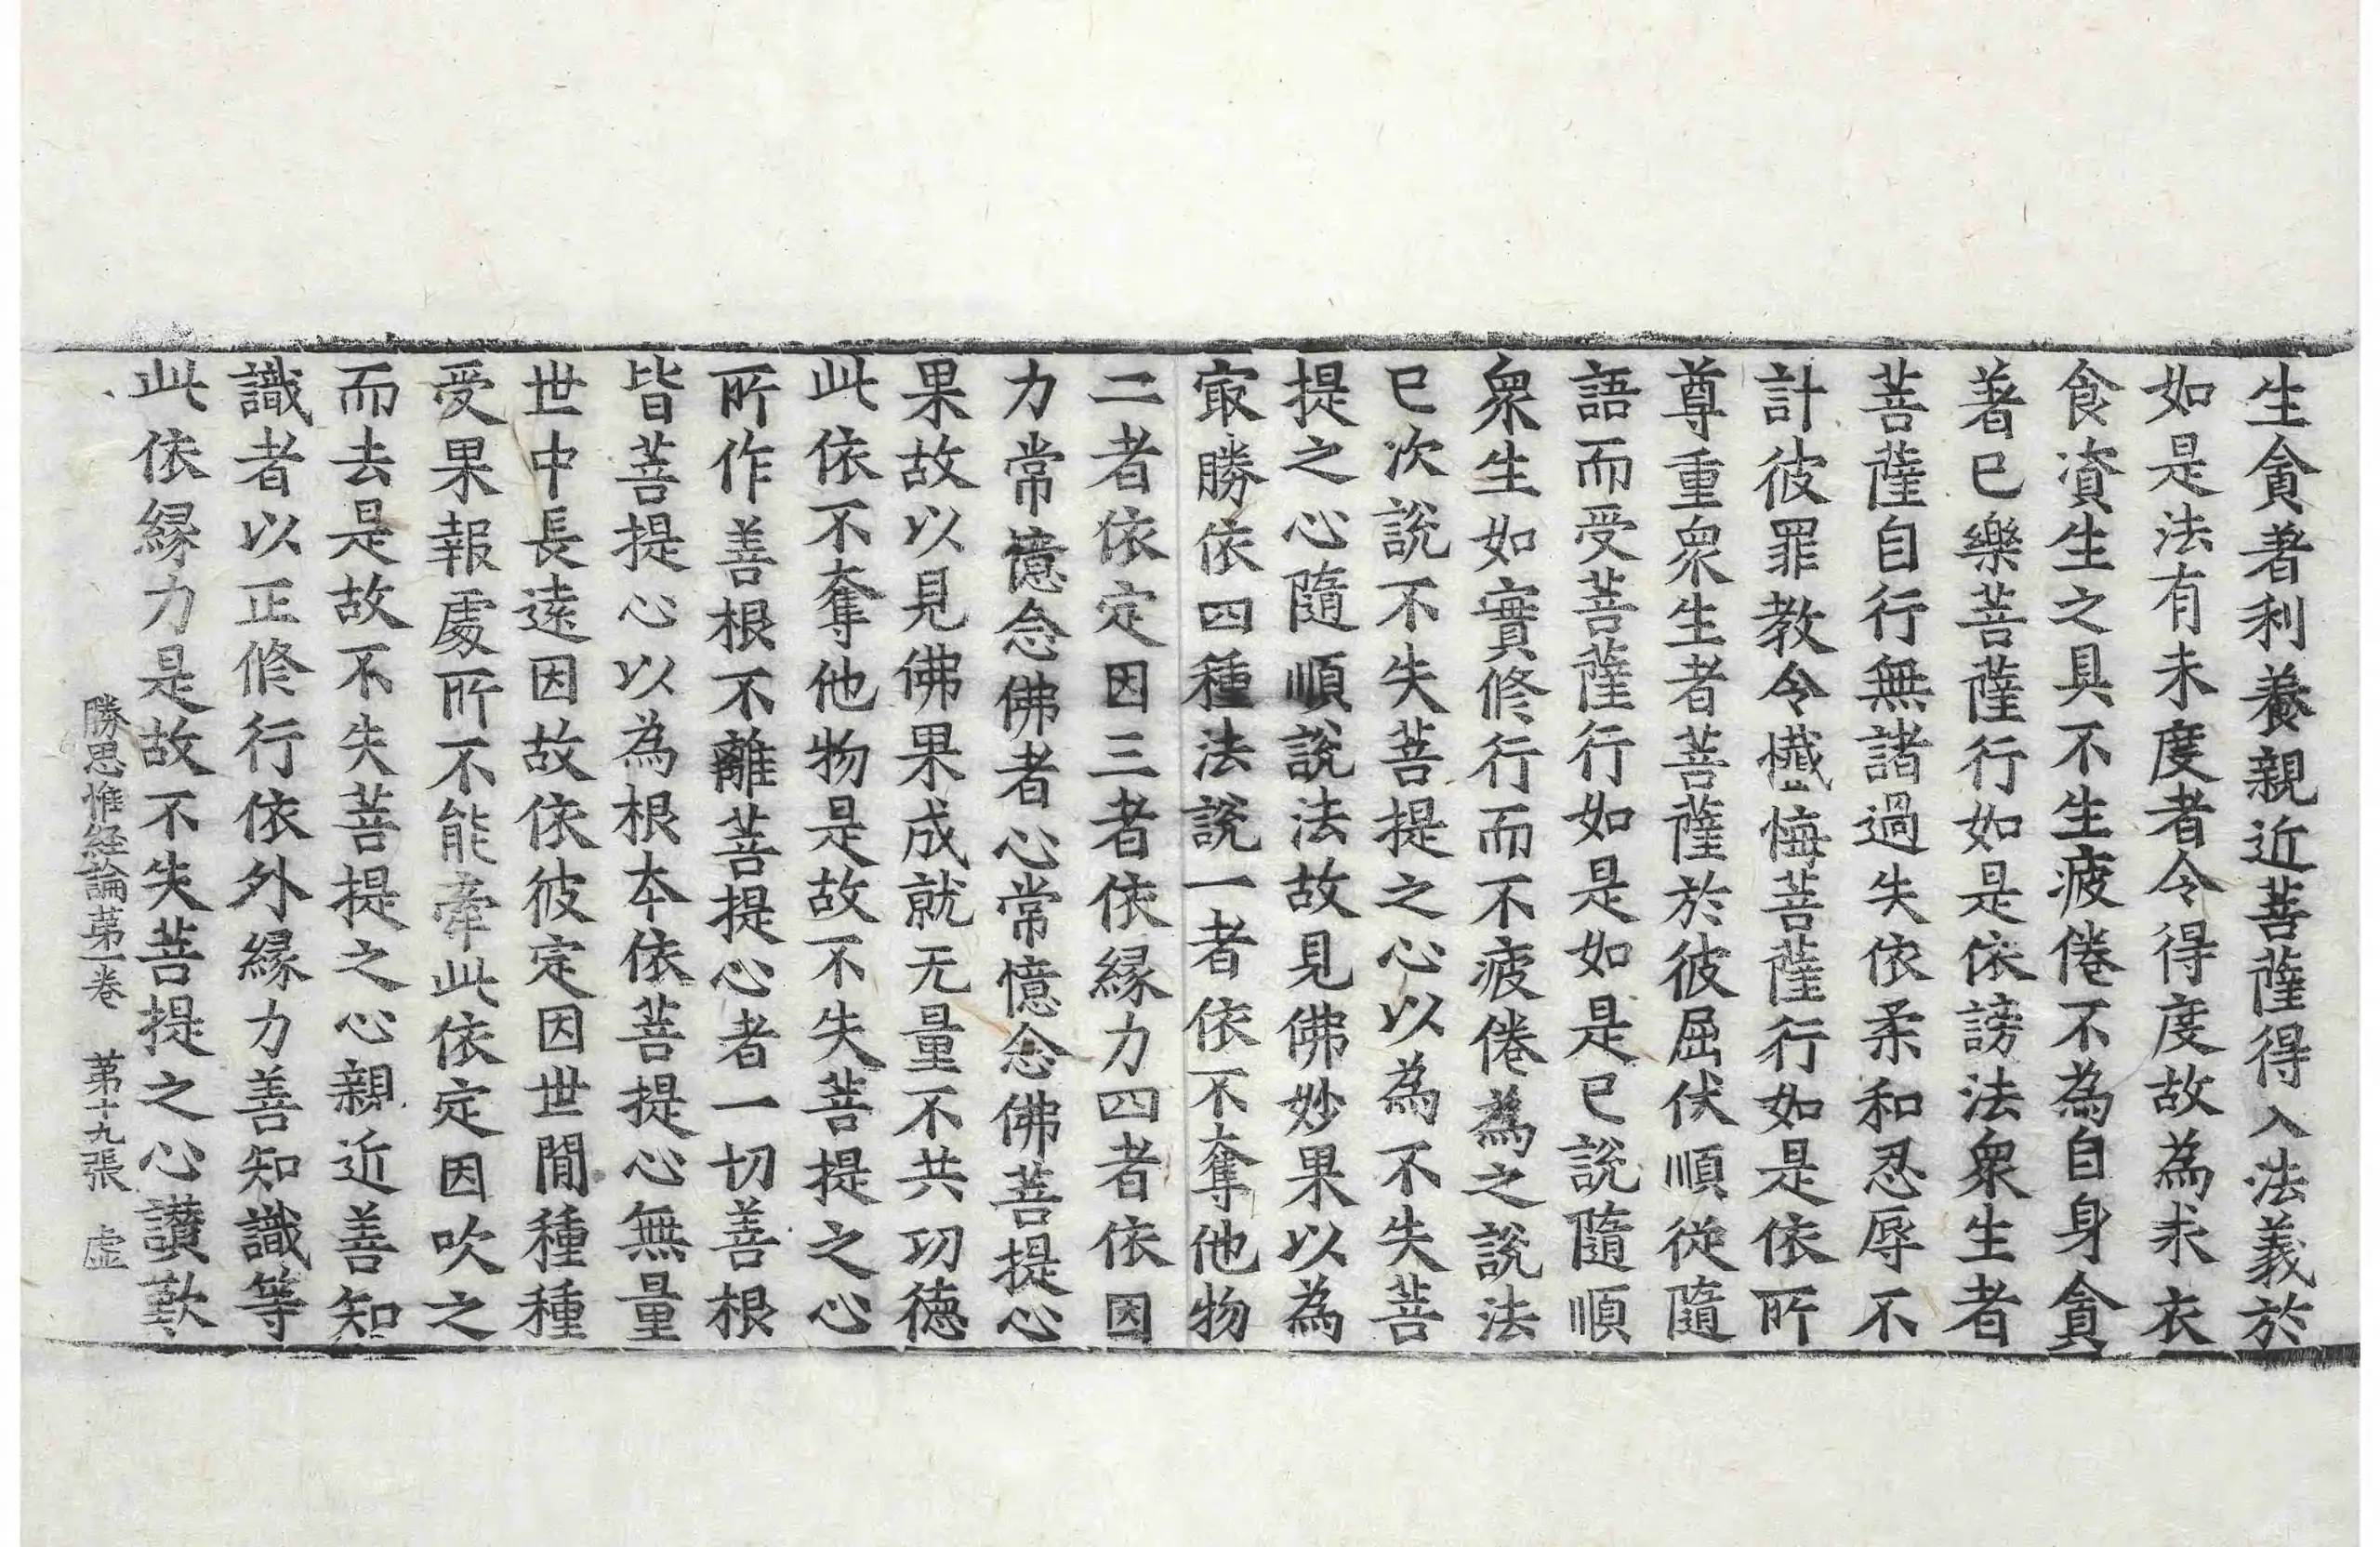 生貪著利養親近菩薩得入法義於
如是法有未度者令得度故為求衣
食資生之具不生疲倦不為自身貪
著已樂菩薩行如是依謗法衆生者
菩薩自行無諸過失依柔和忍辱不
計彼罪教令懺悔菩薩行如是依所
尊重衆生者菩薩於彼屈伏順從隨
語而受菩薩行如是如是已說隨順
衆生如實修行而不疲倦為之說法
已次說不失菩提之心以為不失菩
提之心隨順說法故見佛妙果以為
冣勝依四種法說一者依不奪他物
二者依定因三者依緣力四者依因
力常憶念佛者心常憶念佛菩提心
果故以見佛果成就无量不共功德
此依不奪他物是故不失菩提之心
所作善根不離菩提心者一切善根
皆菩提心以為根本依菩提心無量
世中長遠因故依彼定因世間種種
受果報處所不能牽此依定因吹之
而去是故不失菩提之心親近善知
識者以正修行依外緣力善知識等
此依緣力是故不失菩提之心讚歎
勝思惟經論第一卷 第十九張 虛